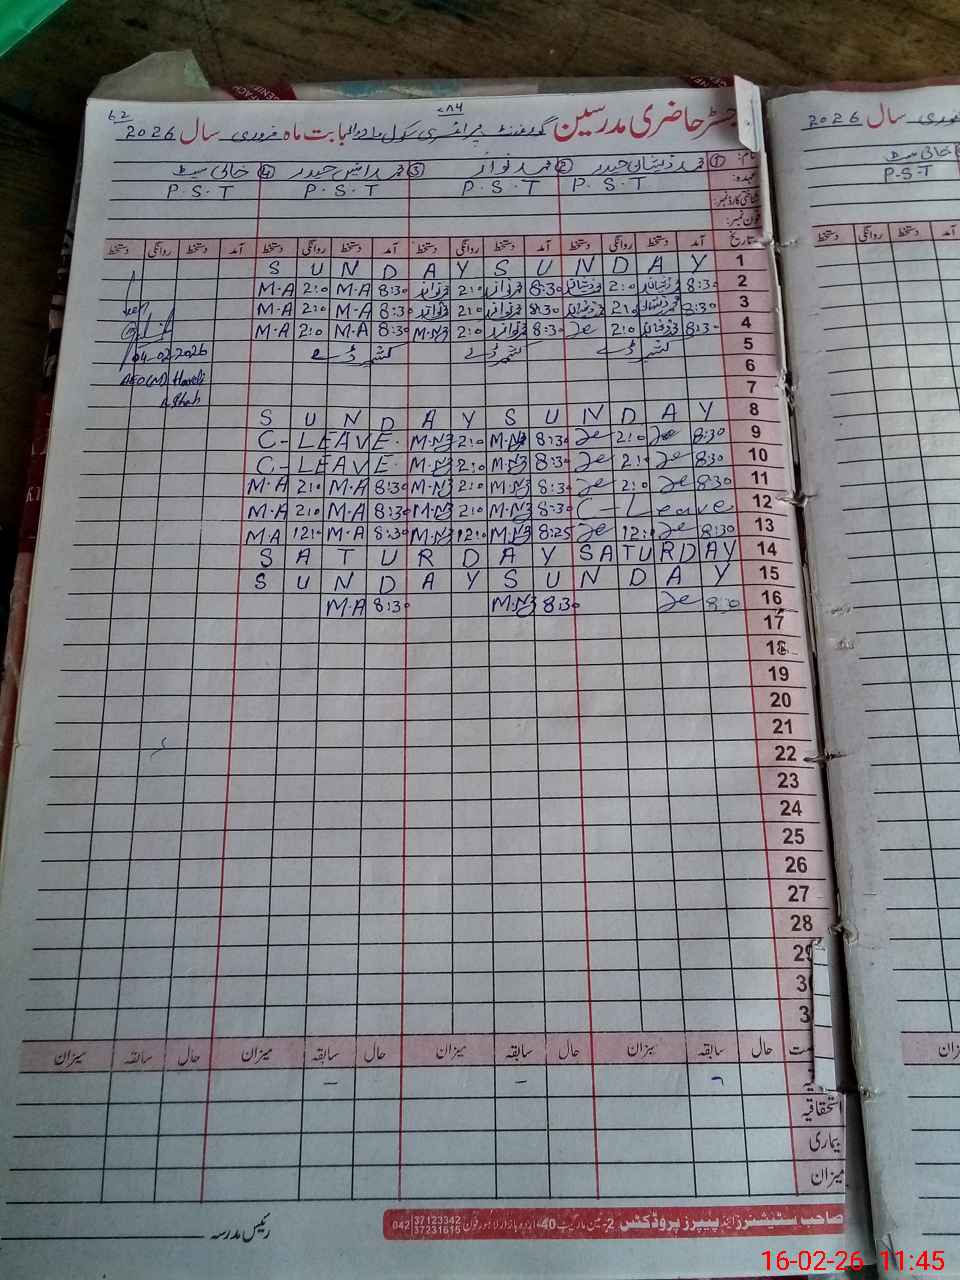 62
رجسٹر حاضری مدرسین گورنمنٹ پرائمری سکول بابت ماہ فروری سال 2026
نام: ① محمد ذیشان حیدر ② محمد نواز ③ محمد انس حیدر ④ خالی سیٹ
عہدہ: P.S.T P.S.T P.S.T P.S.T
شناختی کارڈ نمبر:
فون نمبر:
تاریخ آمد دستخط روانگی دستخط آمد دستخط روانگی دستخط آمد دستخط روانگی دستخط آمد دستخط روانگی دستخط
S U N D A Y S U N D A Y 1
M.A 2:0 M.A 8:30 2:0 8:30 2:0 8:30 2
M.A 2:0 M.A 8:30 2:0 8:30 2:0 8:30 3
M.A 2:0 M.A 8:30 2:0 8:30 2:0 8:30 4
04.02.2026 کشمیر ڈے کشمیر ڈے کشمیر ڈے 5
AEO(M) Haveli 6
Shah 7
S U N D A Y S U N D A Y 8
C-LEAVE. 2:0 8:30 2:0 8:30 9
C-LEAVE. 2:0 8:30 2:0 8:30 10
M.A 2:0 M.A 8:30 2:0 8:30 2:0 8:30 11
M.A 2:0 M.A 8:30 2:0 8:30 C-Leave 12
M.A 12:0 M.A 8:30 12:0 8:25 12:0 8:30 13
S A T U R D A Y SATURDAY 14
S U N D A Y S U N D A Y 15
M.A 8:30 8:30 8:30 16
17
18
19
20
21
22
23
24
25
26
27
28
29
30
3
حال سابقہ میزان حال سابقہ میزان حال سابقہ میزان حال سابقہ میزان
استحقاقیہ
بیماری
میزان
رئیس مدرسہ
صاحب سٹیشنرز اینڈ پیپرز پروڈکٹس 2-مین مارکیٹ 40-اردو بازار لاہور فون 042 37123342 37231615
سال 2026
خالی سیٹ
P.S.T
دستخط روانگی دستخط آمد
16-02-26 11:45